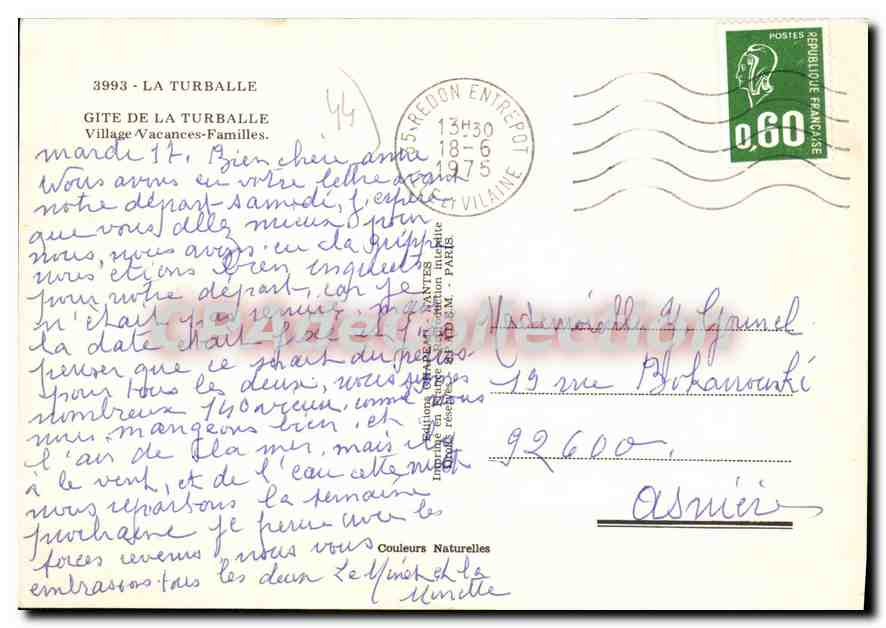 3993 - LA TURBALLE
GITE DE LA TURBALLE
Village-Vacances-Familles.
44
35 REDON ENTREPOT
13H30
18-6
1975
ILLE ET VILAINE
POSTES
REPUBLIQUE FRANÇAISE
0,60
mardi 17. Bien chère amie
Nous avons eu votre lettre avant
notre départ samedi, j'espère
que vous allez mieux pour
nous, nous avons eu la grippe
nous étions bien inquiets
pour notre départ, car je
n'était pas mais
la date était fixé et
penser que ce serait du repos
pour tous les deux, nous sommes
nombreux 140 vieux, comme nous
nous mangeons bien, et
l'air de la mer, mais il y
à le vent, et de l'eau cette nuit
nous repartons la semaine
prochaine je pense avec les
forces revenus nous vous
embrassons tous les deux Le Minet et la
Minette
Editions CHAPEAU - NANTES
Imprimé en France - Reproduction interdite
Droits réservés - S.P.A.D.E.M. - PARIS.
Couleurs Naturelles
Mademoiselle Y.
19 rue Bokanowski
92600.
Asnières
CPA Collection